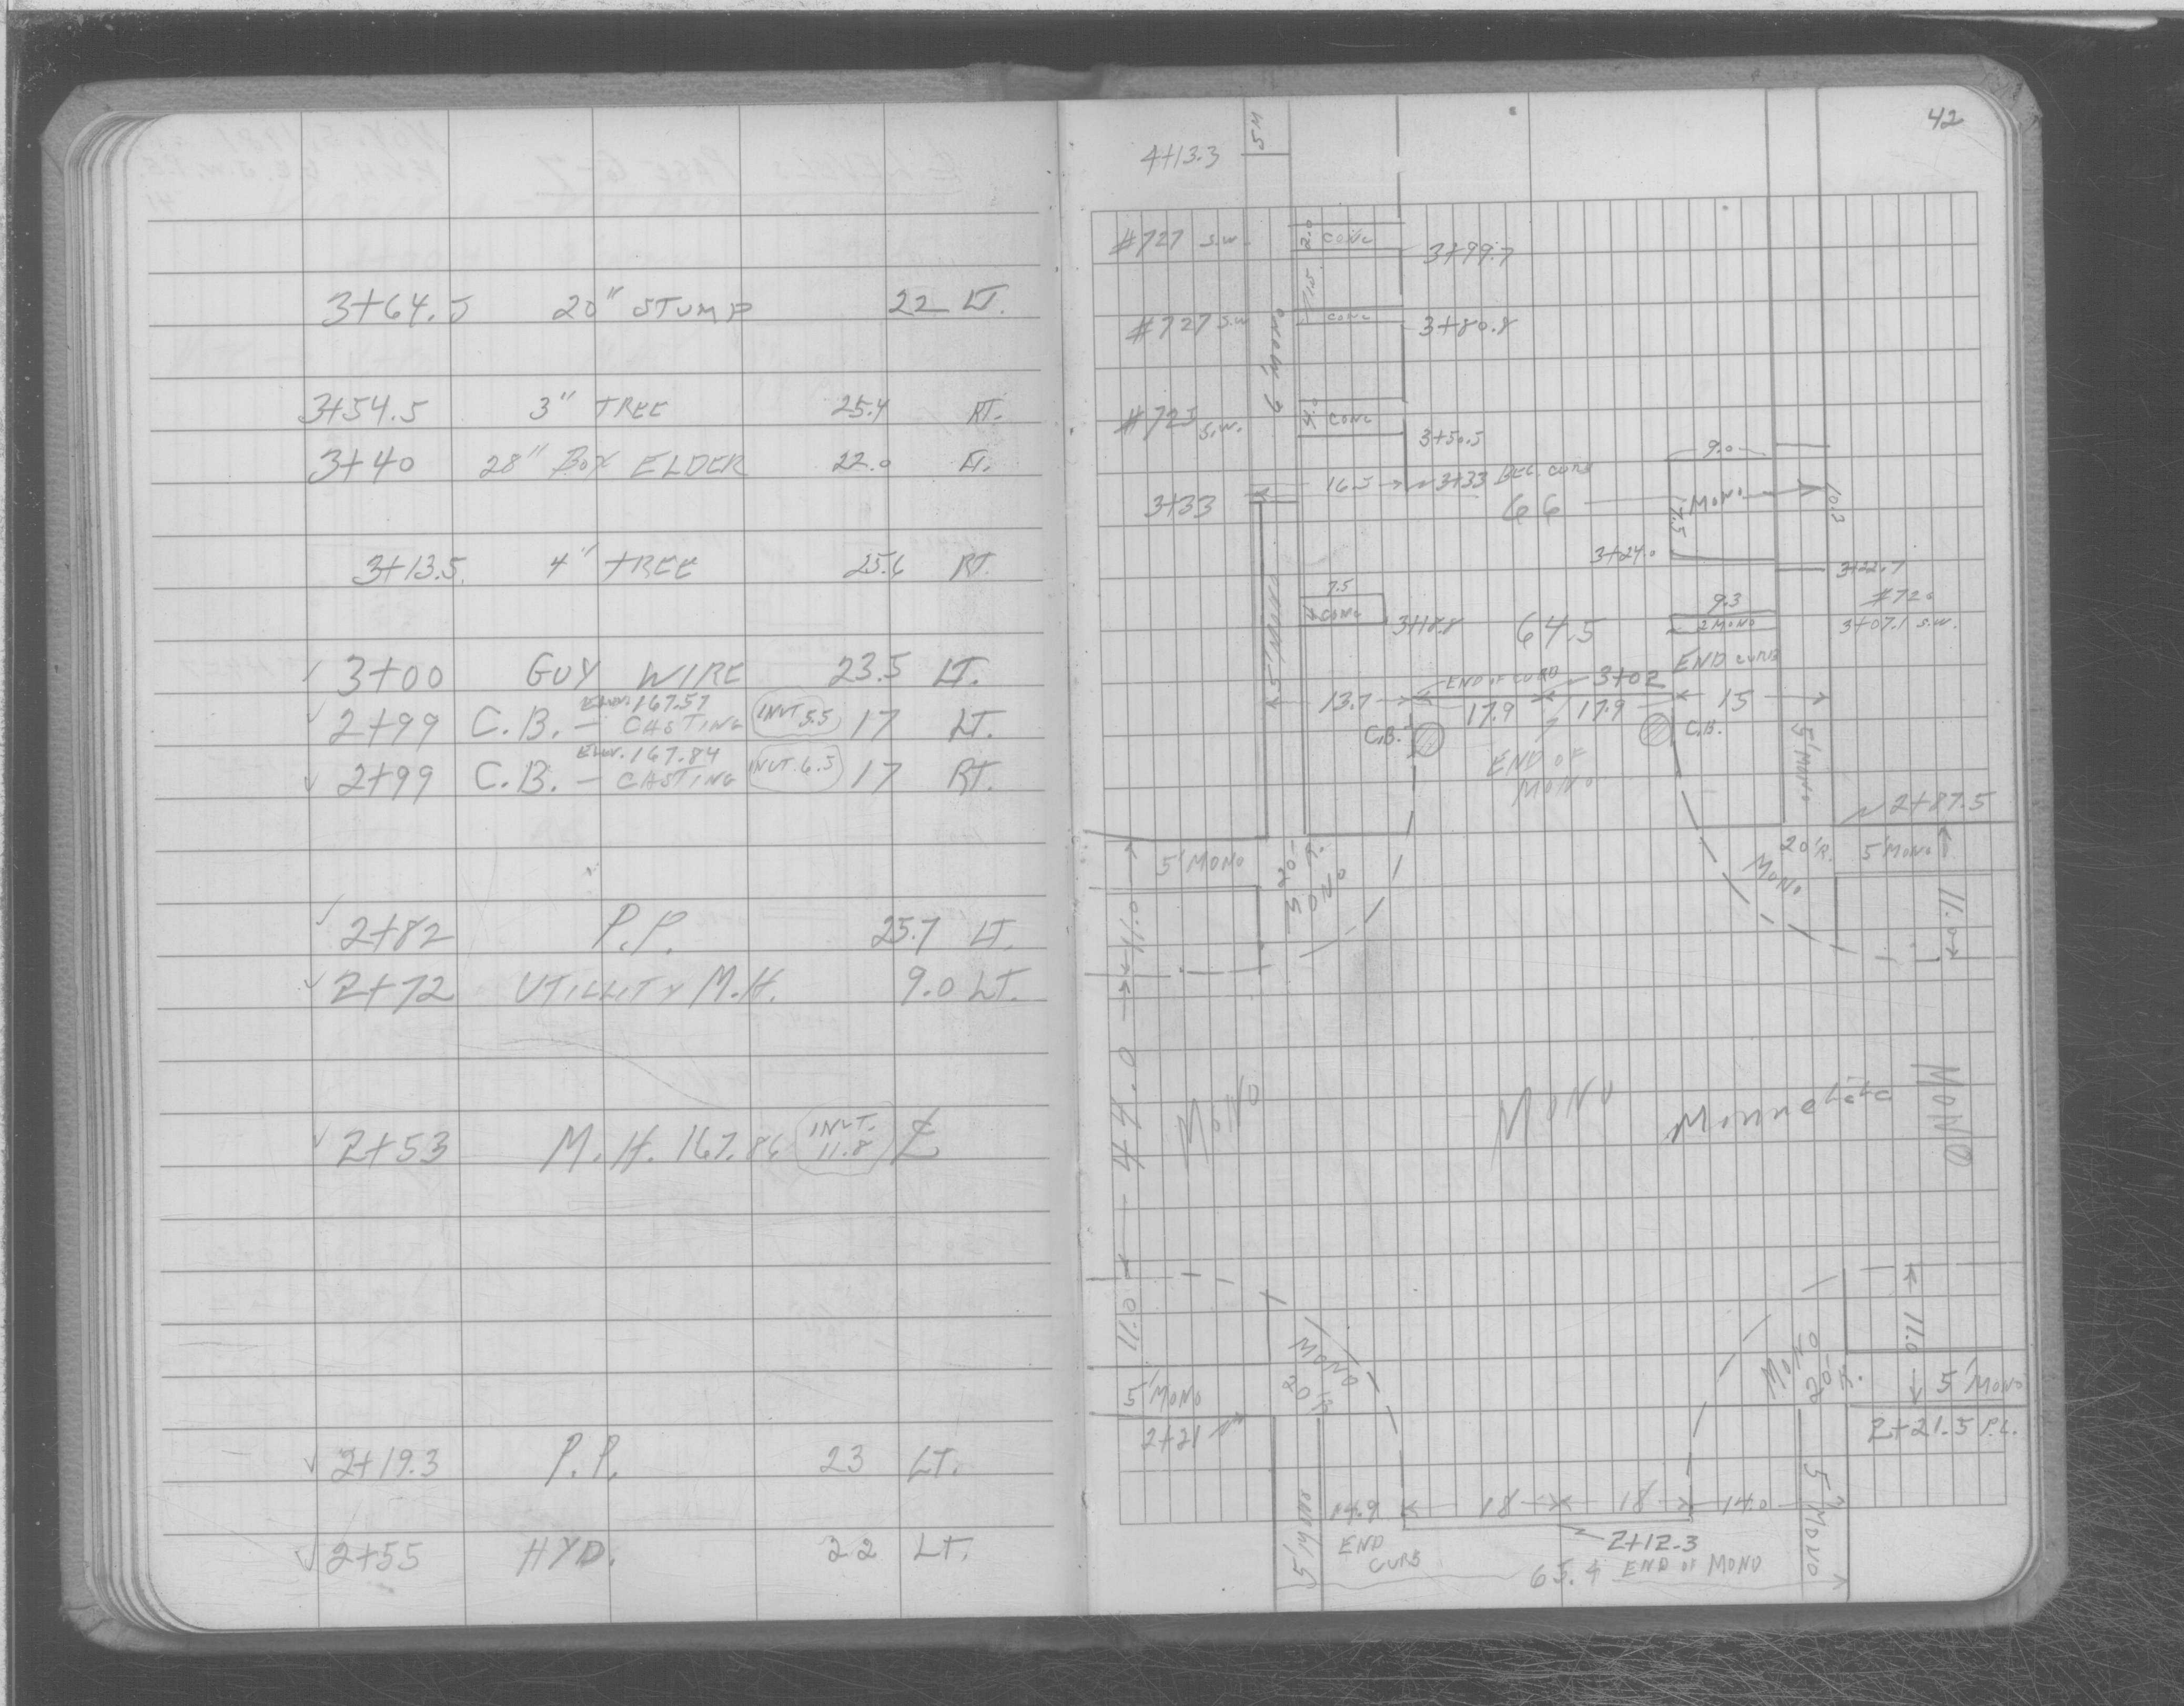 3+64.5 20" STUMP 22 LT.
3+54.5 3" TREE 25.4 RT.
3+40 28" BOX ELDER 22.0 LT.
3+13.5 4" TREE 25.6 RT.
3+00 GUY WIRE 23.5 LT.
ELEV. 167.57
2+99 C.B. - CASTING INVT 5.5 17 LT.
ELEV. 167.84
2+99 C.B. - CASTING INVT. 6.5 17 RT.
2+82 P.P. 25.7 LT.
2+72 UTILLITY M.H. 9.0 LT.
2+53 M.H. 167.86 INVT. 11.8 ℄
2+19.3 P.P. 23 LT.
2+55 HYD. 22 LT.
42
4+13.3
#727 S.W. 2.0 CONC 3+99.7
15.
#727 S.W. CONC 3+80.8
6' MONO
#725 S.W. 4.0 CONC
3+50.5
9.0
16.5 3+33 BEG. CURB
3+33 66 MONO 10.3
7.5
3+24.0
3+22.7
7.5 9.3 #720
CONC 3+18.8 64.5 2 MONO 3+07.1 S.W.
5' MONO
END OF CURB 3+02 END CURB
13.7 17.9 17.9 15
C.B. C.B.
END OF
MONO
5' MONO
2+87.5
5' MONO 20'R. MONO 20'R. MONO 5' MONO
11.0 11.0
44.0
MONO MONO Minnehaha MONO
11.0 11.0
MONO 20'R MONO 20'R.
5' MONO 5' MONO
2+21 2+21.5 P.L.
5' MONO 14.9 18 18 14.0 5' MONO
END
CURB
2+12.3
65.4 END OF MONO